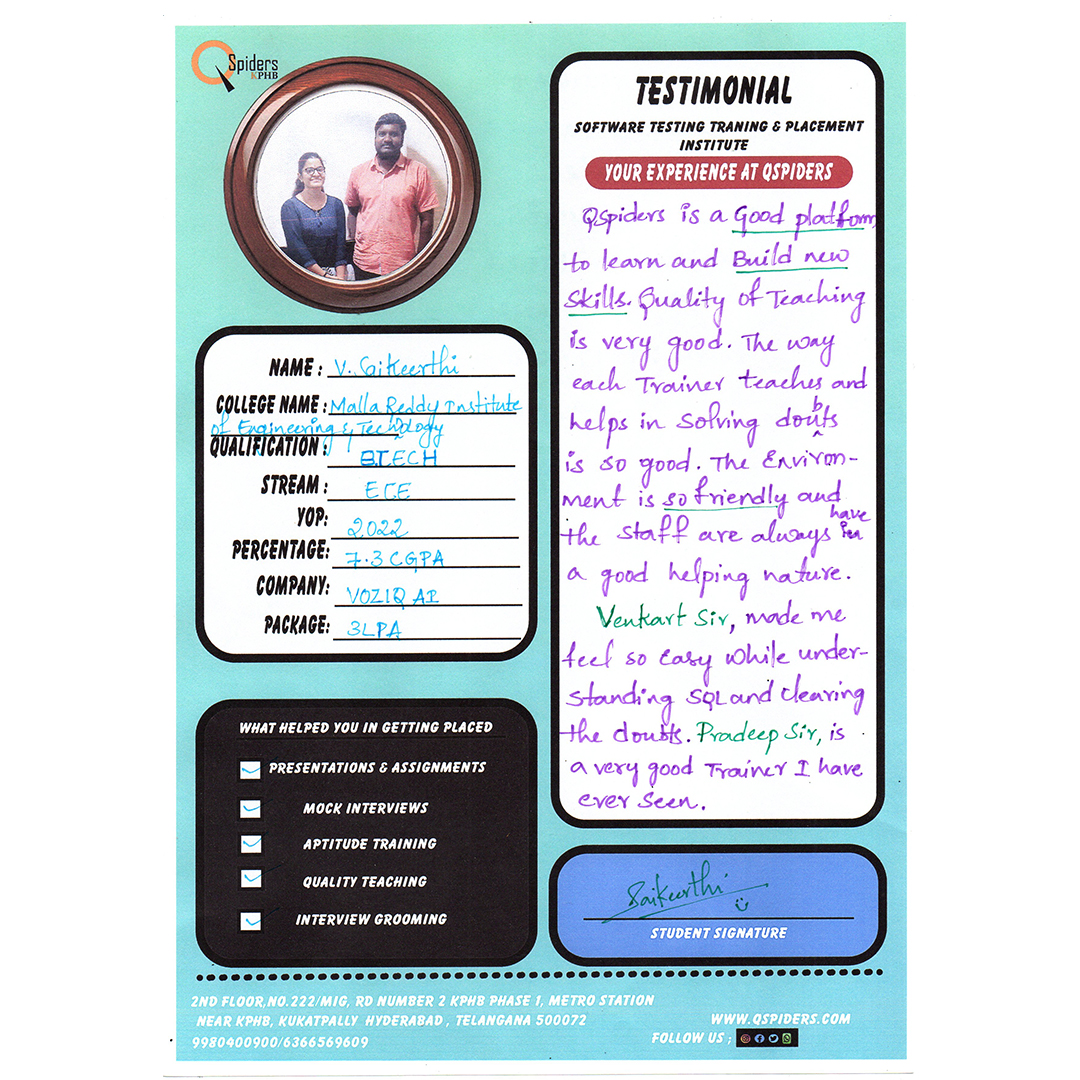 QSpiders
KPHB
NAME : V. Saikeerthi
COLLEGE NAME : Malla Reddy Institute
of Engineering & Technology
QUALIFICATION : B.TECH
STREAM : ECE
YOP: 2022
PERCENTAGE: 7.3 CGPA
COMPANY: VOZIQ AI
PACKAGE: 3LPA
WHAT HELPED YOU IN GETTING PLACED
PRESENTATIONS & ASSIGNMENTS
MOCK INTERVIEWS
APTITUDE TRAINING
QUALITY TEACHING
INTERVIEW GROOMING
TESTIMONIAL
SOFTWARE TESTING TRANING & PLACEMENT
INSTITUTE
YOUR EXPERIENCE AT QSPIDERS
QSpiders is a Good platform
to learn and Build new
Skills. Quality of Teaching
is very good. The way
each Trainer teaches and
helps in Solving doubts
is so good. The Environ-
ment is so friendly and
the staff are always have
a good helping nature.
Venkart Sir, made me
feel so easy while under-
standing SQL and clearing
the doubts. Pradeep Sir, is
a very good Trainer I have
ever seen.
Saikeerthi
STUDENT SIGNATURE
2ND FLOOR,NO.222/MIG, RD NUMBER 2 KPHB PHASE 1, METRO STATION
NEAR KPHB, KUKATPALLY HYDERABAD , TELANGANA 500072
9980400900/6366569609
WWW.QSPIDERS.COM
FOLLOW US ;